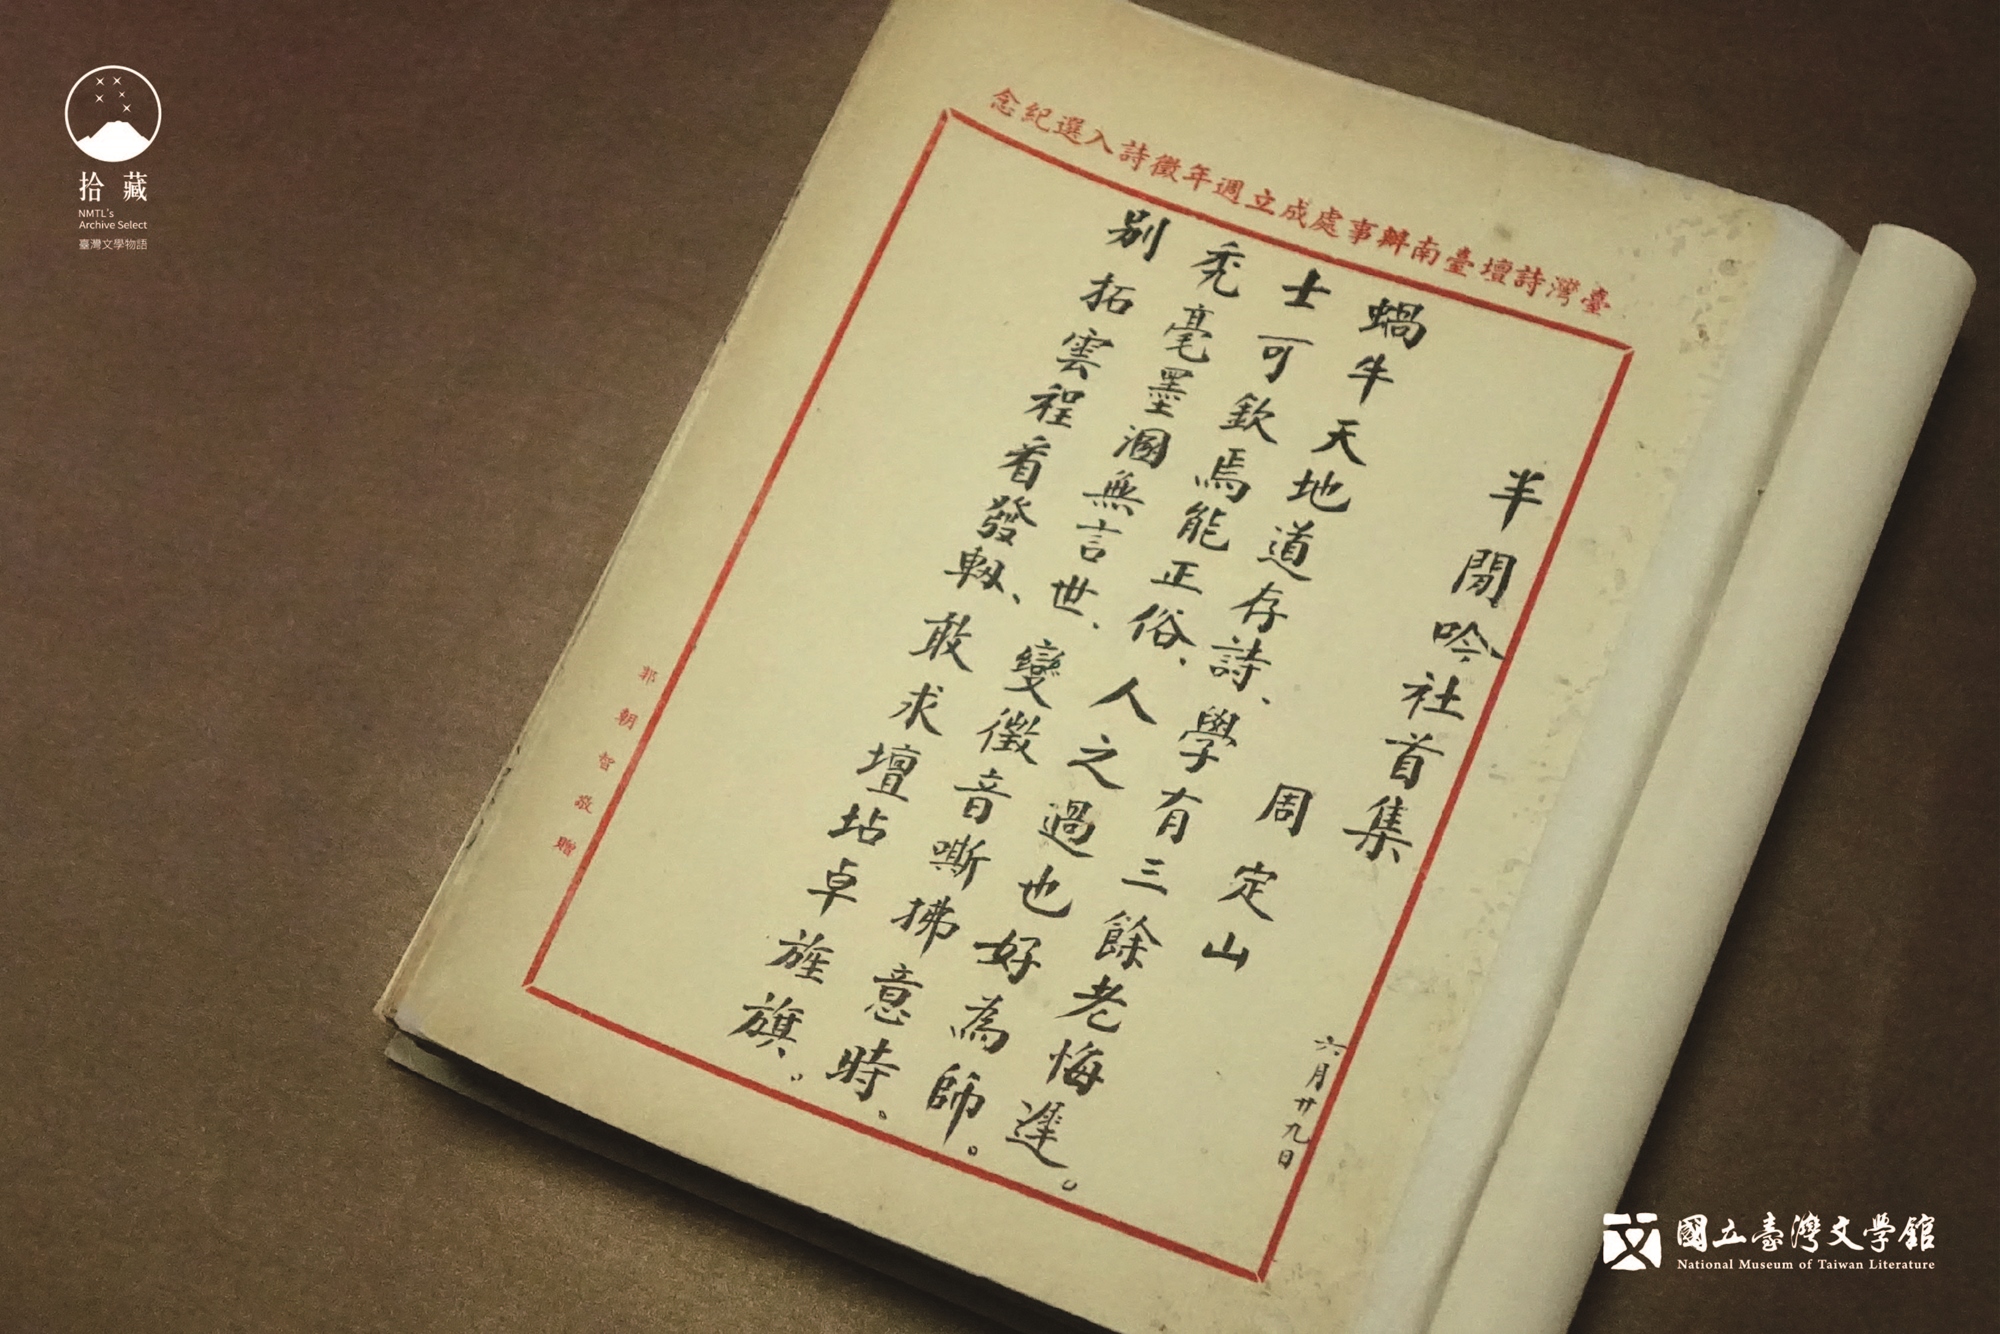 拾藏
NMTL's
Archive Select
臺灣文學物語
臺灣詩壇臺南辦事處成立週年徵詩入選紀念
半閒吟社首集
周定山
六月廿九日
蝸牛天地道存詩、學有三餘老悔遲。
士可欽焉能正俗、人之過也好為師。
禿毫墨溷無言世、變徵音嘶拂意時。
別拓雲程看發軔、敢求壇坫卓旌旗。
郭朝智敬贈
國立臺灣文學館
National Museum of Taiwan Literature